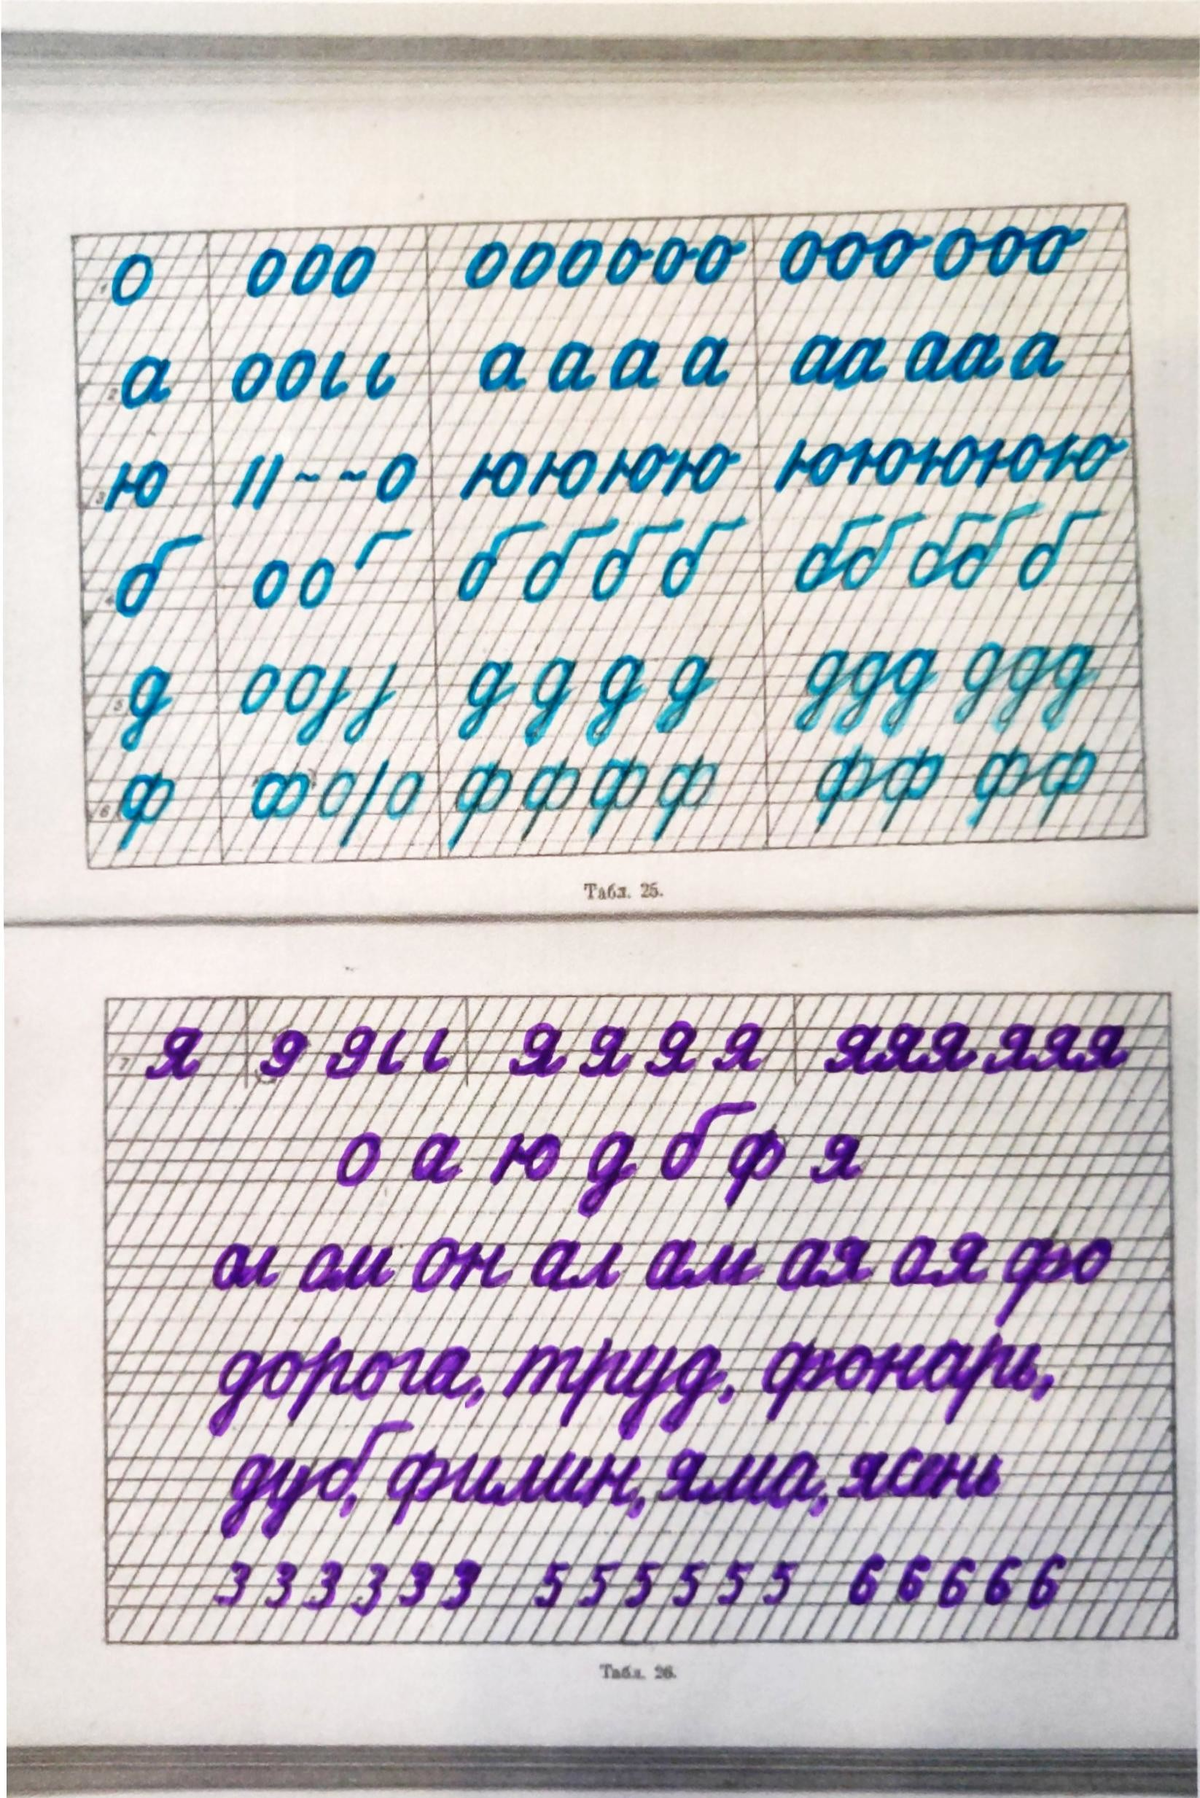 1 о ооо оооооо ооо ооо
2 а оо ι ι а а а а аа ааа а
3 ю || ~ ~ о ююююю ююююю
4 б оо б б б б бб ббб б
5 д оо д д д д ддд ддд
6 ф ф о / о ф ф ф ф фф фф
Табл. 25.
7 я я я ι ι я я я я яяя яяя
о а ю д б ф я
ол ом он ал ам ая оя фо
дорога, труд, фонарь,
дуб, филин, яма, ясень
3 3 3 3 3 3 5 5 5 5 5 5 6 6 6 6 6
Табл. 26.